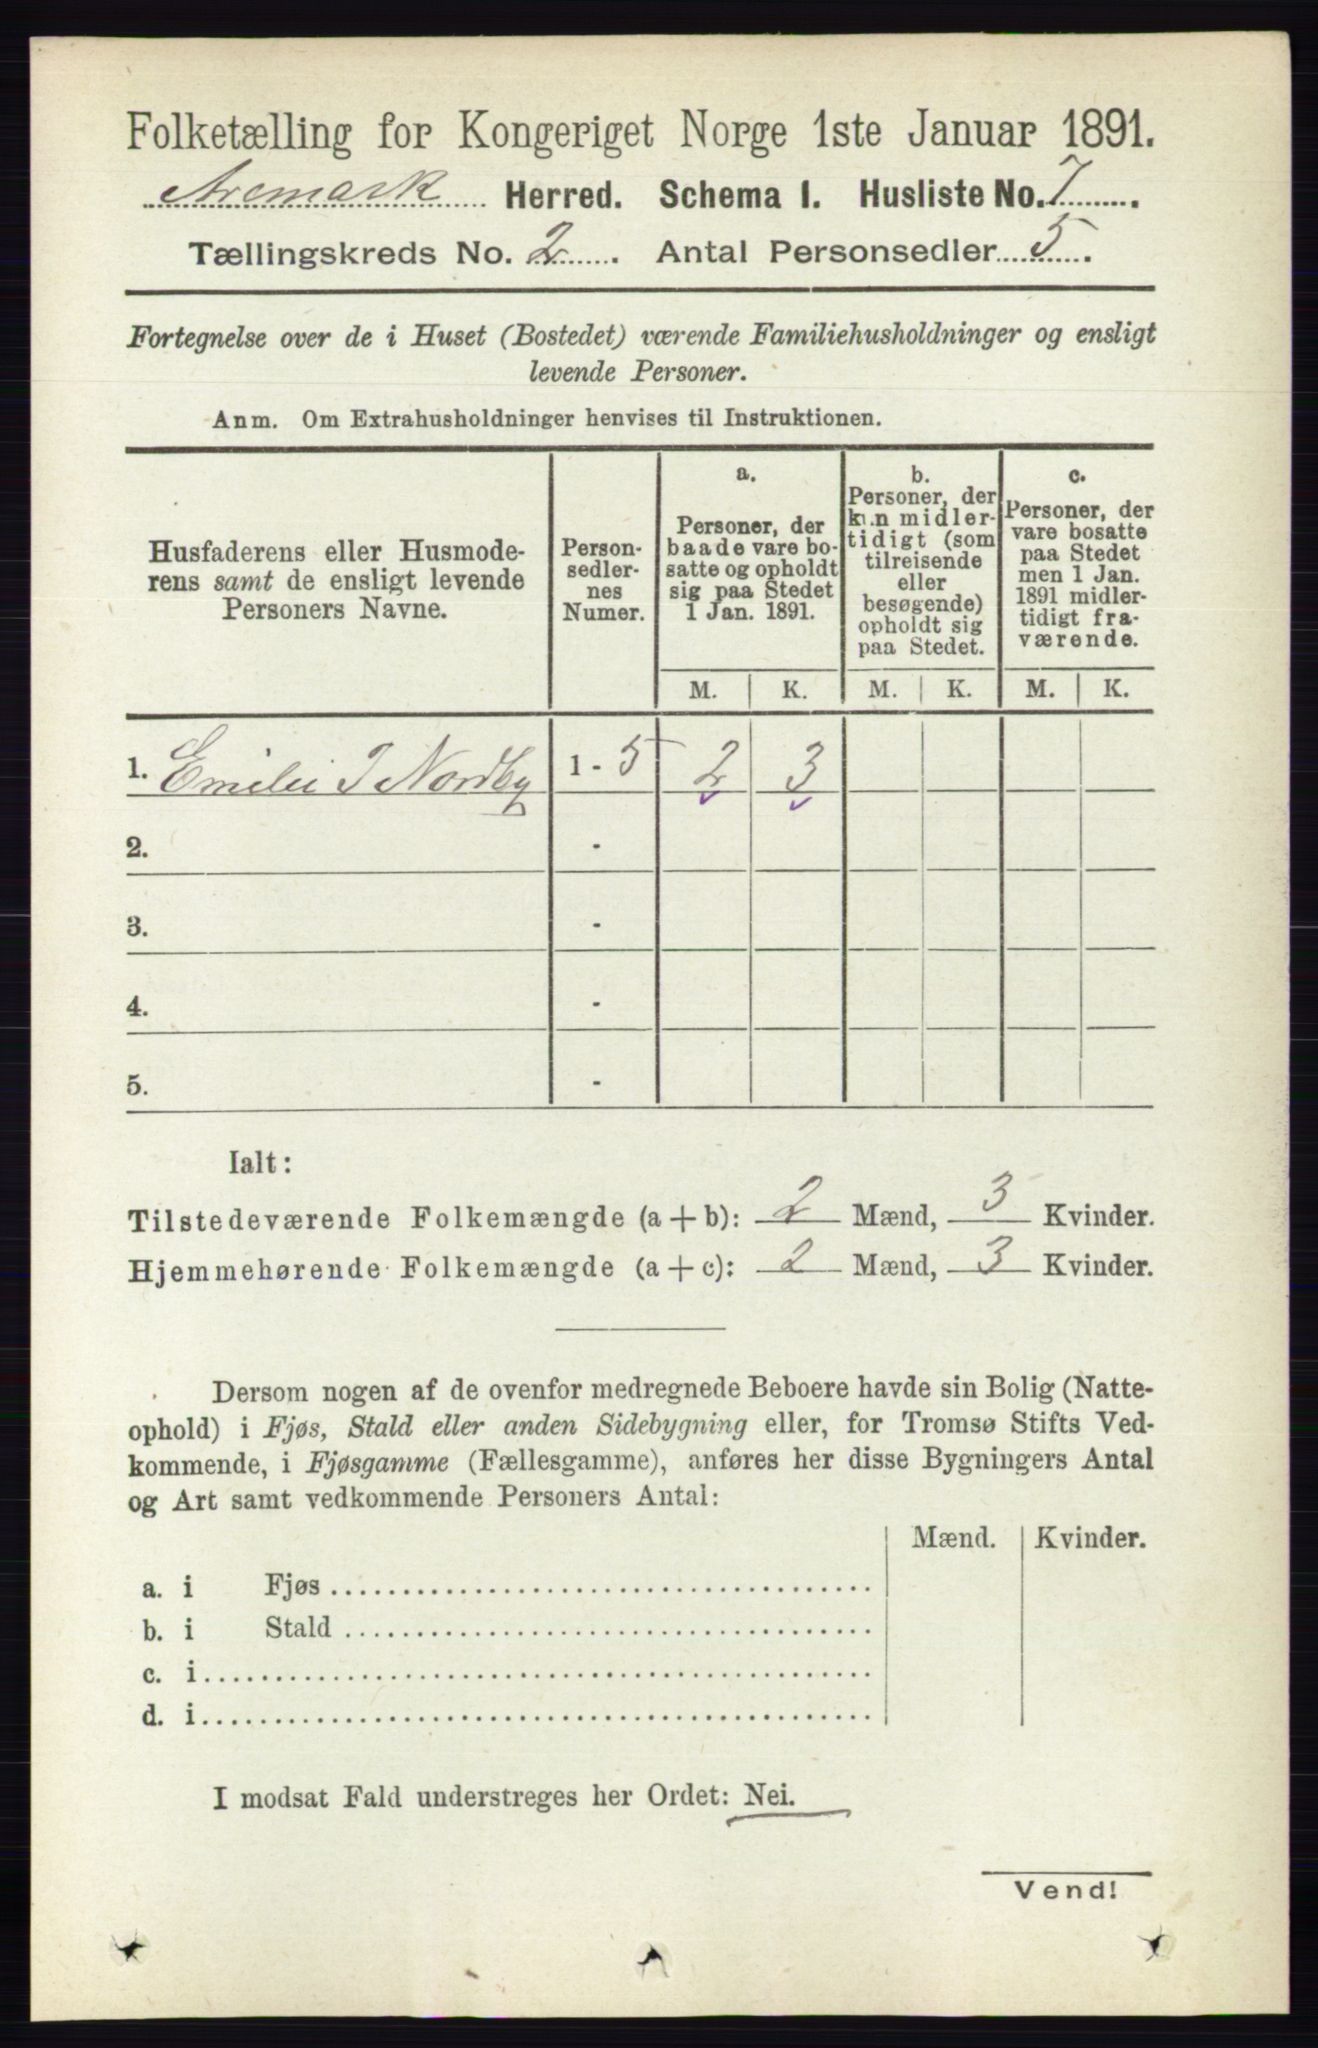 Folketælling for Kongeriget Norge 1ste Januar 1891.
Aremark Herred. Schema I. Husliste No. 7.
Tællingskreds No. 2. Antal Personsedler 5.
Fortegnelse over de i Huset (Bostedet) værende Familiehusholdninger og ensligt
levende Personer.
Anm. Om Extrahusholdninger henvises til Instruktionen.
Husfaderens eller Husmode-
rens samt de ensligt levende
Personers Navne.
Person-
sedler-
nes
Numer.
a.
Personer, der
baade vare bo-
satte og opholdt
sig paa Stedet
1 Jan. 1891.
b.
Personer, der
kun midler-
tidigt (som
tilreisende
eller
besøgende)
opholdt sig
paa Stedet.
c.
Personer, der
vare bosatte
paa Stedet
men 1 Jan.
1891 midler-
tidigt fra-
værende.
M. K. M. K. M. K.
1. Emilie J Nordby 1 - 5 2 3
2. -
3. -
4. -
5. -
Ialt:
Tilstedeværende Folkemængde (a + b): 2 Mænd, 3 Kvinder.
Hjemmehørende Folkemængde (a + c): 2 Mænd, 3 Kvinder.
Dersom nogen af de ovenfor medregnede Beboere havde sin Bolig (Natte-
ophold) i Fjøs, Stald eller anden Sidebygning eller, for Tromsø Stifts Ved-
kommende, i Fjøsgamme (Fællesgamme), anføres her disse Bygningers Antal
og Art samt vedkommende Personers Antal:
Mænd. Kvinder.
a. i Fjøs
b. i Stald
c. i
d. i
I modsat Fald understreges her Ordet: Nei.
Vend!